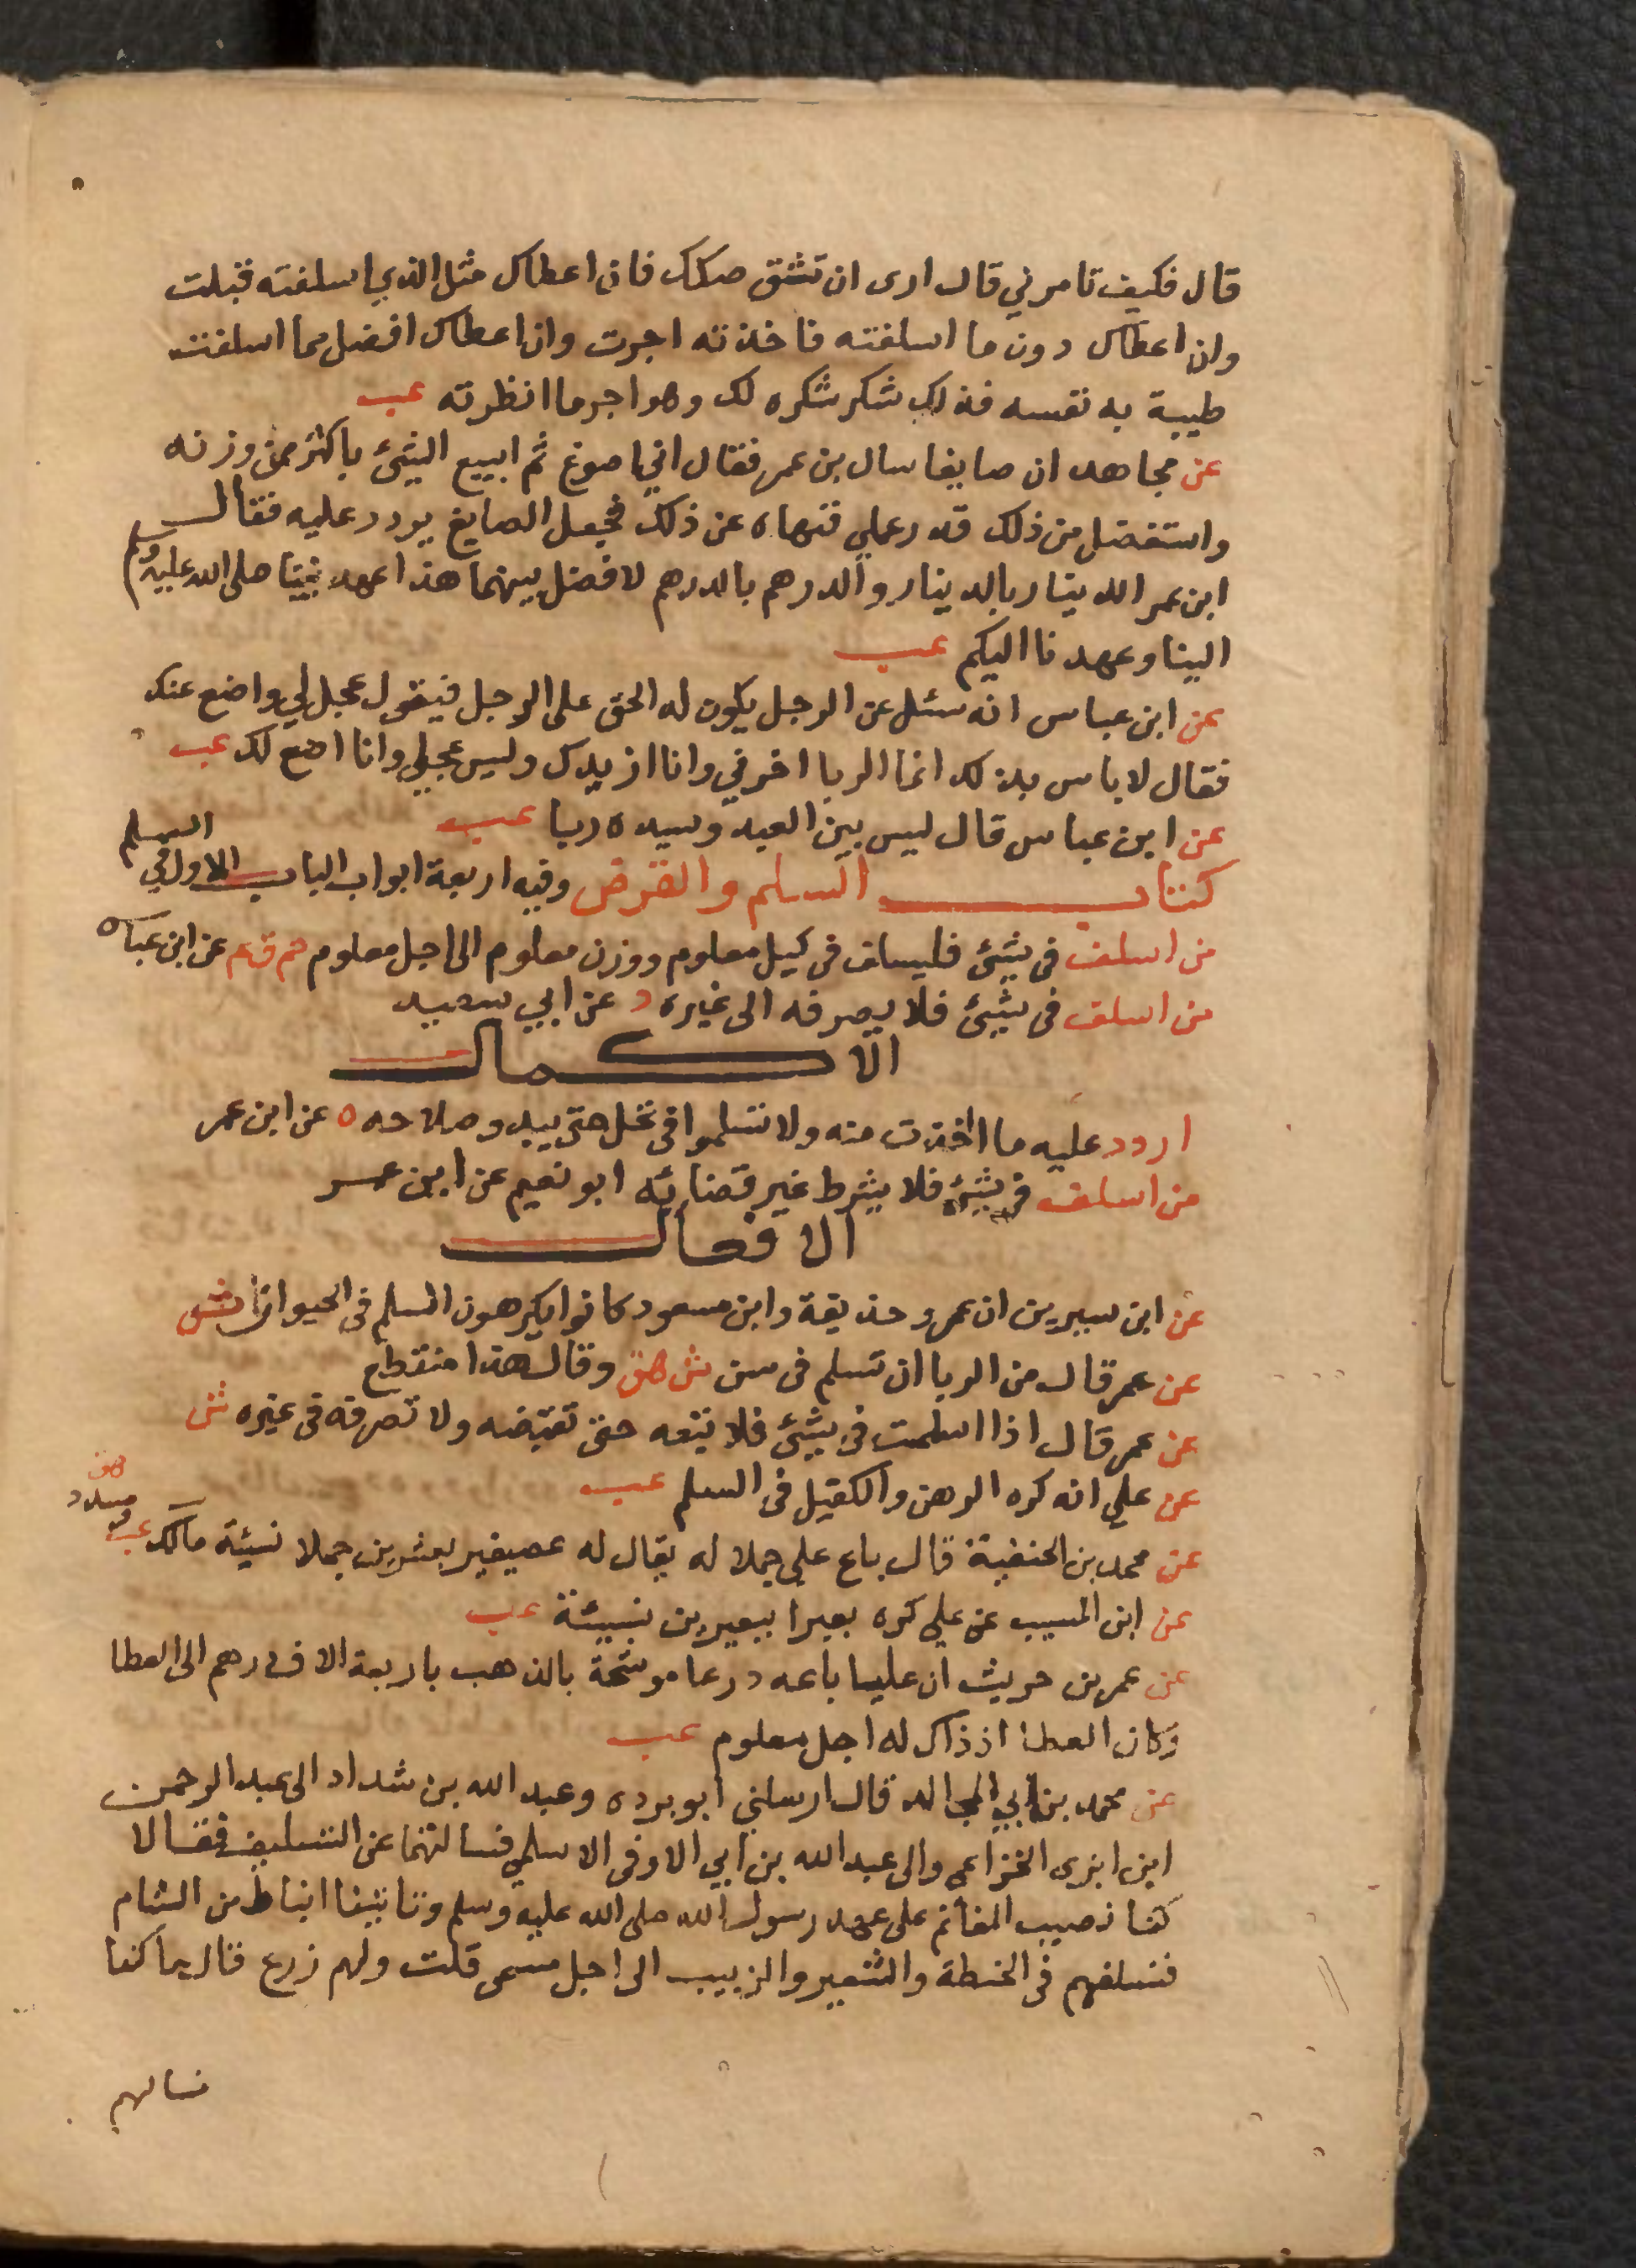 قال فكيف تامرني قال ارى ان تشق صكك فان اعطاك مثل الذي اسلفته قبلت
وان اعطاك دون ما اسلفته فاخذته اجرت وان اعطاك افضل مما اسلفت
طيبة به نفسه فذلك شكر شكره لك وهو اجر ما انظرته عب
عن مجاهد ان صايغا سال بن عمر فقال اني اصوغ ثم ابيع الشئ باكثر من وزنه
واستفضل من ذلك قدر عملي فنهاه عن ذلك فجعل الصايغ يردد عليه فقال
ابن عمر الدينار بالدينار والدرهم بالدرهم لا فضل بينهما هذا عهد نبينا صلى الله عليه وسلم
الينا وعهدنا اليكم عب
عن ابن عباس انه سئل عن الرجل يكون له الحق على الرجل فيقول عجل لي واضع عنك
فقال لا باس بذلك انما الربا اخرني وانا ازيدك وليس عجل لي وانا اضع لك عب
عن ابن عباس قال ليس بين العبد وسيده ربا عب
كتاب السلم والقرض وفيه اربعة ابواب الباب الاول في السلم
من اسلف في شئ فليسلف في كيل معلوم ووزن معلوم الى اجل معلوم حم ق ع عن ابن عباس
من اسلف في شئ فلا يصرفه الى غيره د عن ابي سعيد
الاكمال
اردد عليه ما اخذت منه ولا تسلموا في نخل حتى يبدو صلاحه ه عن ابن عمر
من اسلف في شئ فلا يشرط غير قضائه ابو نعيم عن ابن عمر
الافعال
عن ابن سيرين ان عمر وحذيفة وابن مسعود كانوا يكرهون السلم في الحيوان ش
عن عمر قال من الربا ان تسلم في سن ش هق وقال هذا منقطع
عن عمر قال اذا اسلمت في شئ فلا تبعه حتى تقبضه ولا تصرفه في غيره ش
عن علي انه كره الرهن والكفيل في السلم عب
عن محمد بن الحنفية قال باع علي جملا له يقال له عصيفير بعشرين جملا نسيئة مالك عب ومسدد هق
عن ابن المسيب عن علي كره بعيرا ببعيرين نسيئة عب
عن عمر بن حريث ان عليا باعه درعا موشحة بالذهب باربعة الاف درهم الى العطا
وكان العطا اذ ذاك له اجل معلوم عب
عن محمد بن ابي المجالد قال ارسلني ابو برده وعبد الله بن شداد الى عبد الرحمن
ابن ابزى الخزاعي والى عبد الله بن ابي الاوفى الاسلمي فسالتهما عن التسليف فقالا
كنا نصيب المغانم على عهد رسول الله صلى الله عليه وسلم وتاتينا انباط من الشام
فنسلفهم في الحنطة والشعير والزبيب الى اجل مسمى قلت ولهم زرع قال ما كنا
نسالهم